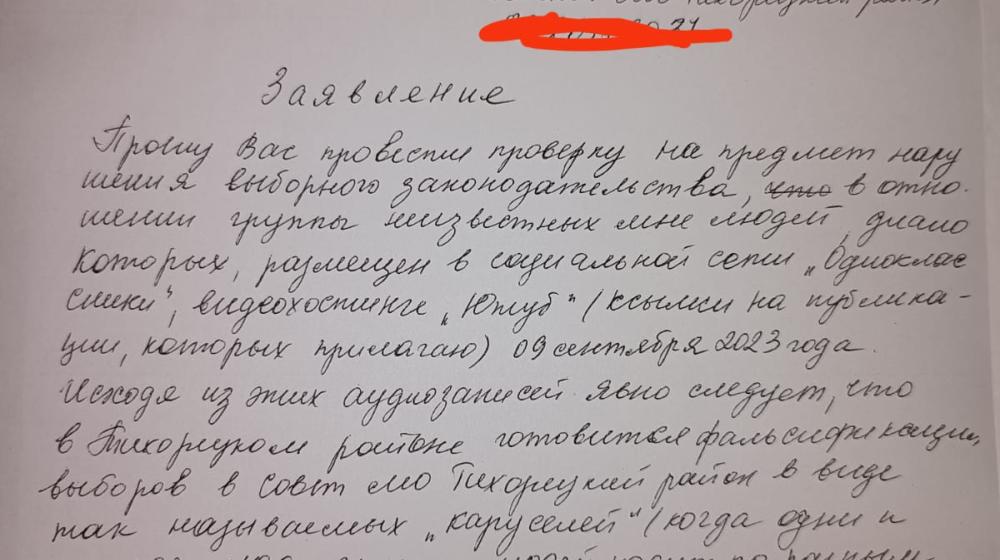 Тихорецкий район
Заявление
Прошу Вас провести проверку на предмет нару
шения выборного законодательства, что в отно-
шении группы неизвестных мне людей, диало
которых, размещен в социальной сети „Однокла‌с
сники", видеохостинге „Ютуб" (ссылки на публика-
ции, которых прилагаю) 09 сентября 2023 года.
Исходя из этих аудиозаписей явно следует, что
в Тихорецком районе готовится фальсификация,
выборов в совет МО Тихорецкий район в виде
так называемых „каруселей" (когда одни и